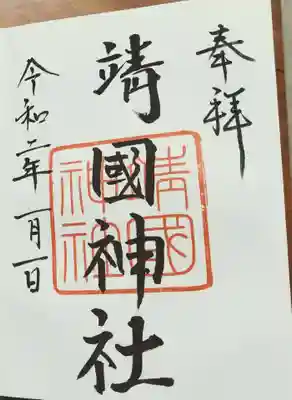 奉拝
靖國神社
靖國神社
令和二年一月一日